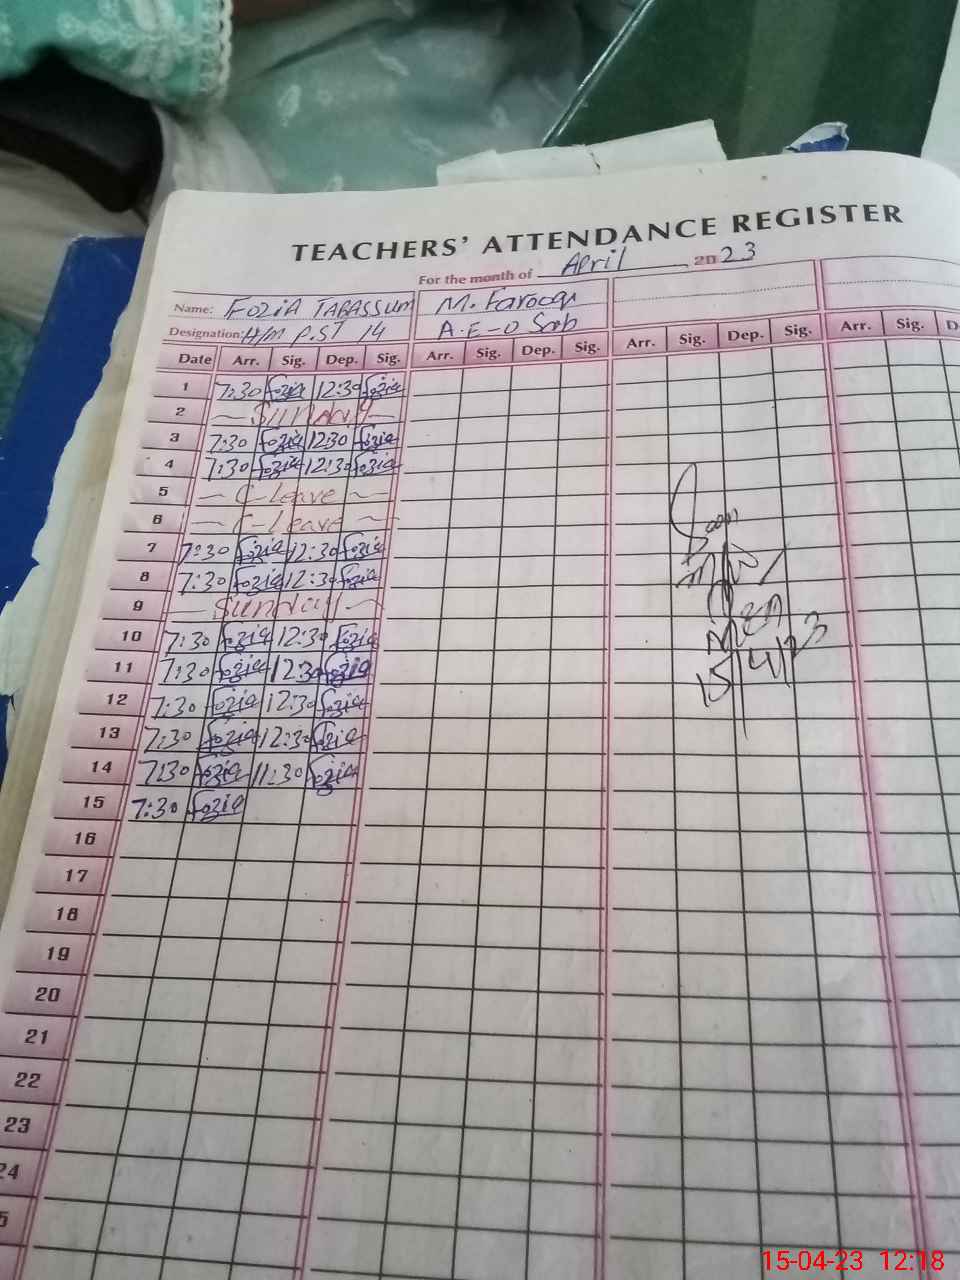 TEACHERS' ATTENDANCE REGISTER
For the month of April 2023
Name: FOZIA TABASSUM M. Farooq
Designation: H/M P.ST 14 A.E-O
Date Arr. Sig. Dep. Sig. Arr. Sig. Dep. Sig. Arr. Sig. Dep. Sig. Arr. Sig. D
1 7:30 Fozia 12:30 Fozia
2 Sunday
3 7:30 Fozia 12:30 Fozia
4 7:30 Fozia 12:30 Fozia
5 C-Leave
6 C-Leave
7 7:30 Fozia 12:30 Fozia
8 7:30 Fozia 12:30 Fozia
9 Sunday
10 7:30 Fozia 12:30 Fozia
11 7:30 Fozia 12:30 Fozia
12 7:30 Fozia 12:30 Fozia
13 7:30 Fozia 12:30 Fozia
14 7:30 Fozia 11:30 Fozia
15 7:30 Fozia
16
17
18
19
20
21
22
23
24
5
Seen
15/4/23
15-04-23 12:18